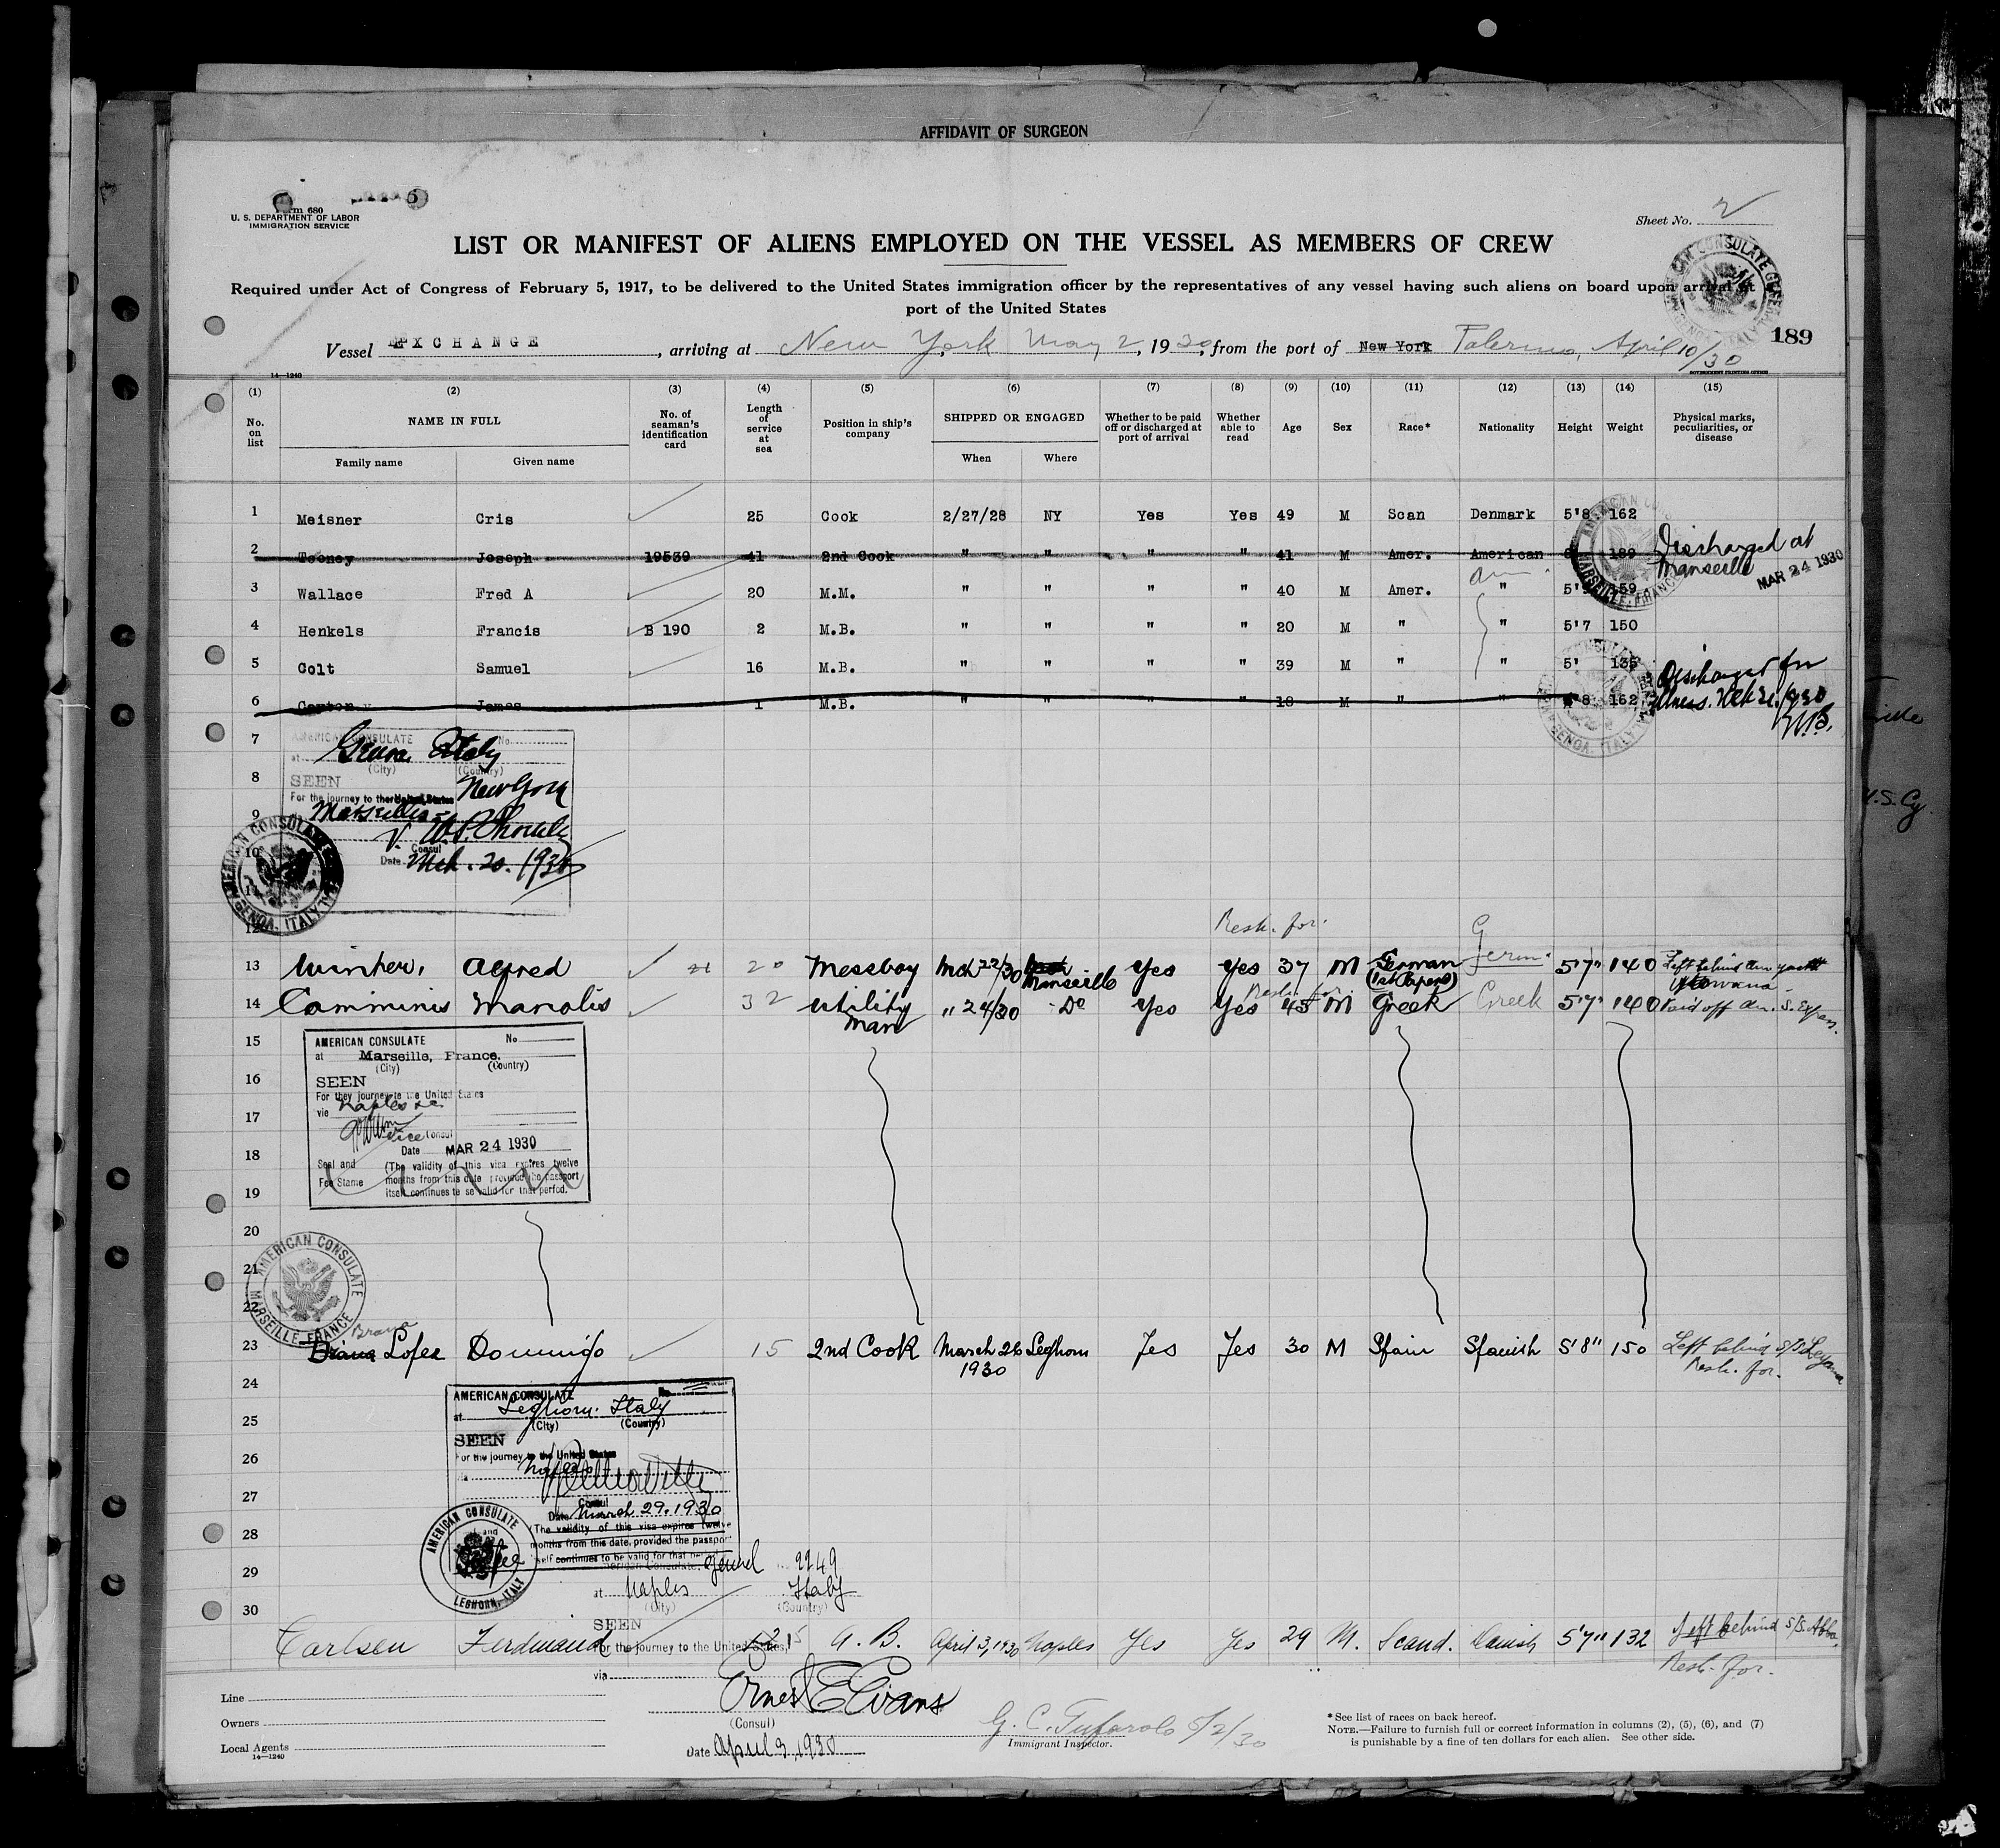 AFFIDAVIT OF SURGEON
Form 680
U. S. DEPARTMENT OF LABOR
IMMIGRATION SERVICE
5
Sheet No. 2
LIST OR MANIFEST OF ALIENS EMPLOYED ON THE VESSEL AS MEMBERS OF CREW
Required under Act of Congress of February 5, 1917, to be delivered to the United States immigration officer by the representatives of any vessel having such aliens on board upon arrival at a
port of the United States
AMERICAN CONSULATE GENERAL
189
Vessel EXCHANGE, arriving at New York, May 2, 1930, from the port of New York Palermo, April 10/30
14-1240
GOVERNMENT PRINTING OFFICE
(1) (2) (3) (4) (5) (6) (7) (8) (9) (10) (11) (12) (13) (14) (15)
No. on list NAME IN FULL No. of seaman's identification card Length of service at sea Position in ship's company SHIPPED OR ENGAGED Whether to be paid off or discharged at port of arrival Whether able to read Age Sex Race* Nationality Height Weight Physical marks, peculiarities, or disease
Family name Given name When Where
1 Meisner Cris 25 Cook 2/27/28 NY Yes Yes 49 M Scan Denmark 5'8 162
2 Tooney Joseph 19539 41 2nd Cook " " " " 41 M Amer. American 189 Discharged at Marseille MAR 24 1930
AMERICAN CONSULATE MARSEILLE, FRANCE
3 Wallace Fred A 20 M.M. " " " " 40 M Amer. " 5' 159
4 Henkels Francis B 190 2 M.B. " " " " 20 M " " 5'7 150
5 Colt Samuel 16 M.B. " " " " 39 M " " 5' 135
6 James 1 M.B. " " " " 18 M " " 8 162 Discharged for illness. Mch 21/930
GENOA, ITALY
7
AMERICAN CONSULATE No.
at Genoa Italy
(City) (Country)
8
SEEN
For the journey to the United States New York
9
Marseilles
10
Consul
Date Mch. 20. 1930
AMERICAN CONSULATE GENOA, ITALY
11
12 Resh. for.
13 Winther, Alfred 21 20 Messboy Mch 22/30 Marseille Yes Yes 37 M German (1st Papers) Germ. 5'7" 140 Left behind Am yacht
14 Camminis Manolis 32 Utility Man " 24/30 Do Yes Resh. for. Yes 45 M Greek Greek 5'7" 140 Paid off Am. S.
15
AMERICAN CONSULATE No
at Marseille, France.
(City) (Country)
16
SEEN
For they journey to the United States
17
vie Naples &c
Vice Consul
18
Date MAR 24 1930
Seal and Fee Stame (The validity of this visa expires twelve
months from this date provided the passport
19
itself continues to se valid for that perfod.
20
21
22
AMERICAN CONSULATE MARSEILLE, FRANCE
Brana
23 Brana Lopez Domingo 15 2nd Cook March 26 1930 Leghorn Yes Yes 30 M Spain Spanish 5'8" 150 Left behind S/S Resh. for.
24
AMERICAN CONSULATE No.
at Leghorn. Italy
25
(City) (Country)
SEEN
26
For the journey to the United States
via Naples
27
Consul
Date March 29, 1930
28
(The validity of this visa expires twelve
months from this date, provided the passport
itself continues to be valid for that period
AMERICAN CONSULATE LEGHORN, ITALY
American Consulate General 2249
29
at Naples Italy
(City) (Country)
30
SEEN
For the journey to the United States,
Carlsen Ferdinand 15 A. B. April 3, 1930 Naples Yes Yes 29 M. Scand. Danish 5'7" 132 Left behind S/S.
Resh. for.
via
Ernest E Evans
(Consul)
Date April 3, 1930
Line
Owners
Local Agents
14-1240
G. C. Tufarolo 5/2/30
Immigrant Inspector.
*See list of races on back hereof.
NOTE.—Failure to furnish full or correct information in columns (2), (5), (6), and (7)
is punishable by a fine of ten dollars for each alien. See other side.